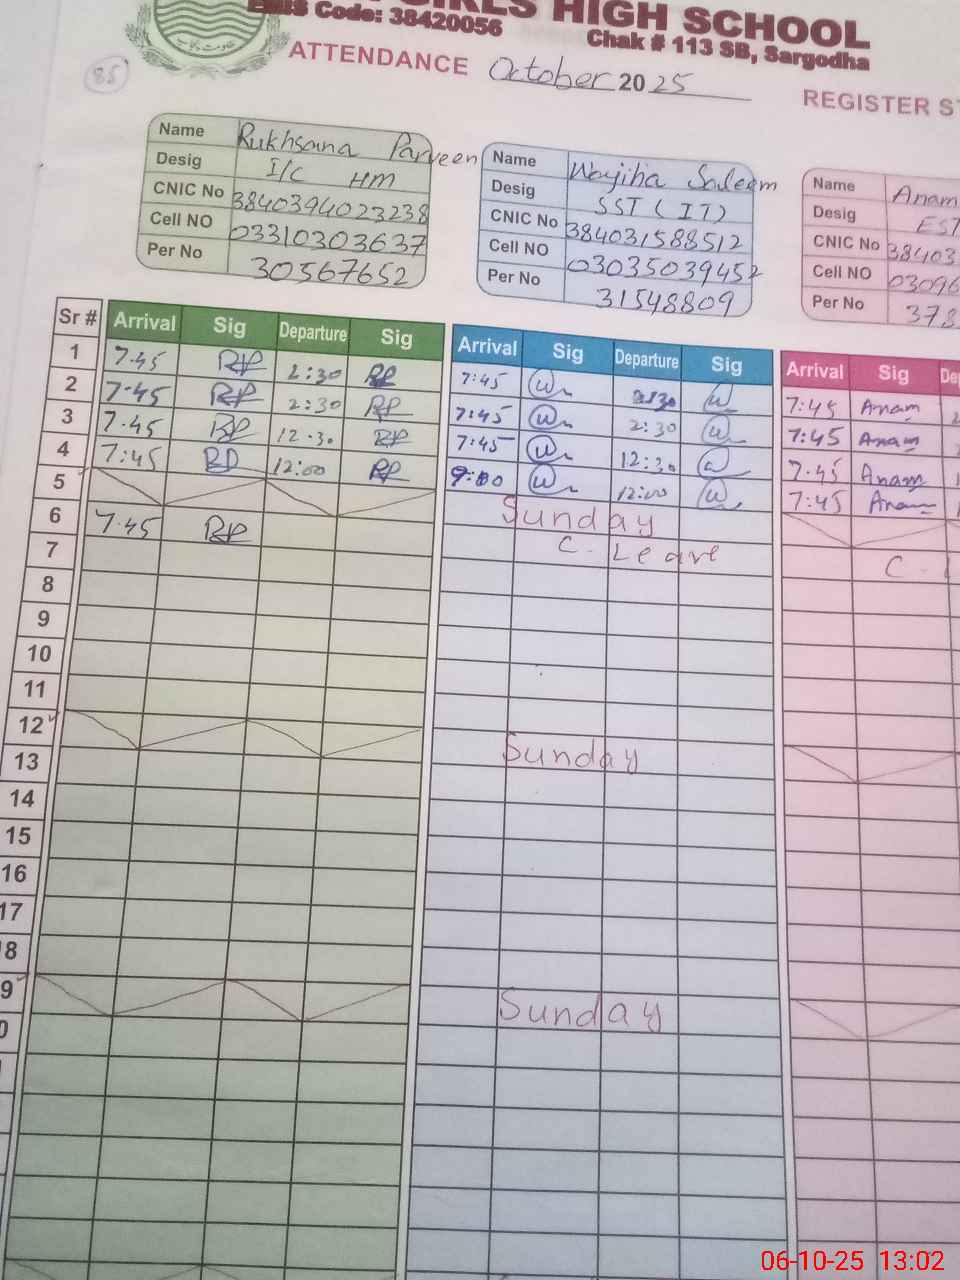 GIRLS HIGH SCHOOL
EMIS Code: 38420056
Chak # 113 SB, Sargodha
85
ATTENDANCE October 2025
REGISTER
Name Rukhsana Parveen
Desig I/C HM
CNIC No 3840394023238
Cell NO 03310303637
Per No 30567652
Name Wajiha Saleem
Desig SST (IT)
CNIC No 384031588512
Cell NO 03035039452
Per No 31548809
Name Anam
Desig EST
CNIC No 38403
Cell NO 03096
Per No 378
Sr # Arrival Sig Departure Sig Arrival Sig Departure Sig Arrival Sig
1 7.45 RP 2:30 RP 7:45 W 2:30 W 7:45 Anam
2 7.45 RP 2:30 RP 7:45 W 2:30 W 7:45 Anam
3 7.45 RP 12.30 RP 7:45 W 12:30 W 7.45 Anam
4 7:45 RP 12:00 RP W 12:00 W 7:45 Anam
5 Sunday
6 7.45 RP C. Leave C.
7
8
9
10
11
12 Sunday
13
14
15
16
17
8
9 Sunday
0
06-10-25 13:02